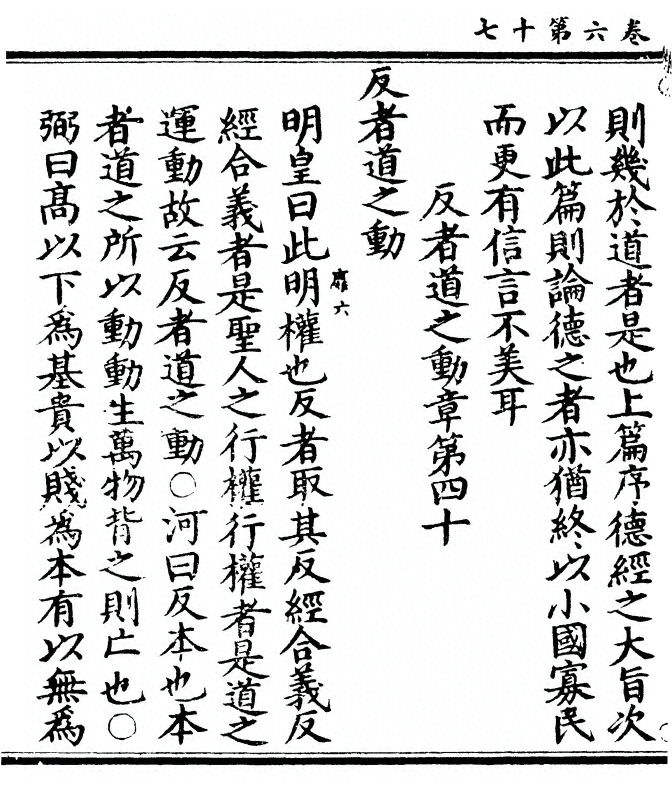 卷六第十七
則幾於道者是也上篇序德經之大旨次
以此篇則論德之者亦猶終以小國寡民
而更有信言不美耳
反者道之動章第四十
反者道之動
靡六
明皇曰此明權也反者取其反經合義反
經合義者是聖人之行權行權者是道之
運動故云反者道之動〇河曰反本也本
者道之所以動動生萬物背之則亡也〇
弼曰髙以下爲基貴以賤爲本有以無爲